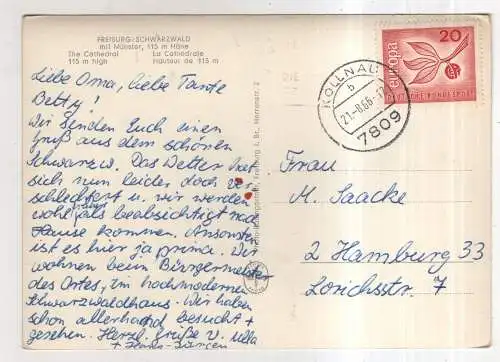 FREIBURG/SCHWARZWALD
mit Münster, 115 m Höhe
The Cathedral
115 m high
La Cathédrale
Hauteur de 115 m
Liebe Oma, liebe Tante
Betty!
Wir senden Euch einen
Gruß aus dem schönen
Schwarzw. Das Wetter hat
sich nun leider doch ver
schlechtert u. wir werden
wohl früher als beabsichtigt nach
Hause kommen. Ansonsten
ist es hier ja prima. Wir
wohnen beim Bürgermeister
des Ortes, im hochmodernen
Schwarzwaldhaus. Wir haben
schon allerhand besucht +
gesehen. Herzl. Grüße v. Ulla
+ Hans-Jürgen
Freiburg i. Br., Herrenstr. 2
KOLLNAU
b
21.-8.66.-17
7809
europa
20
DEUTSCHE BUNDESPOST
Frau
M. Saacke
2 Hamburg 33
Lorichsstr. 7